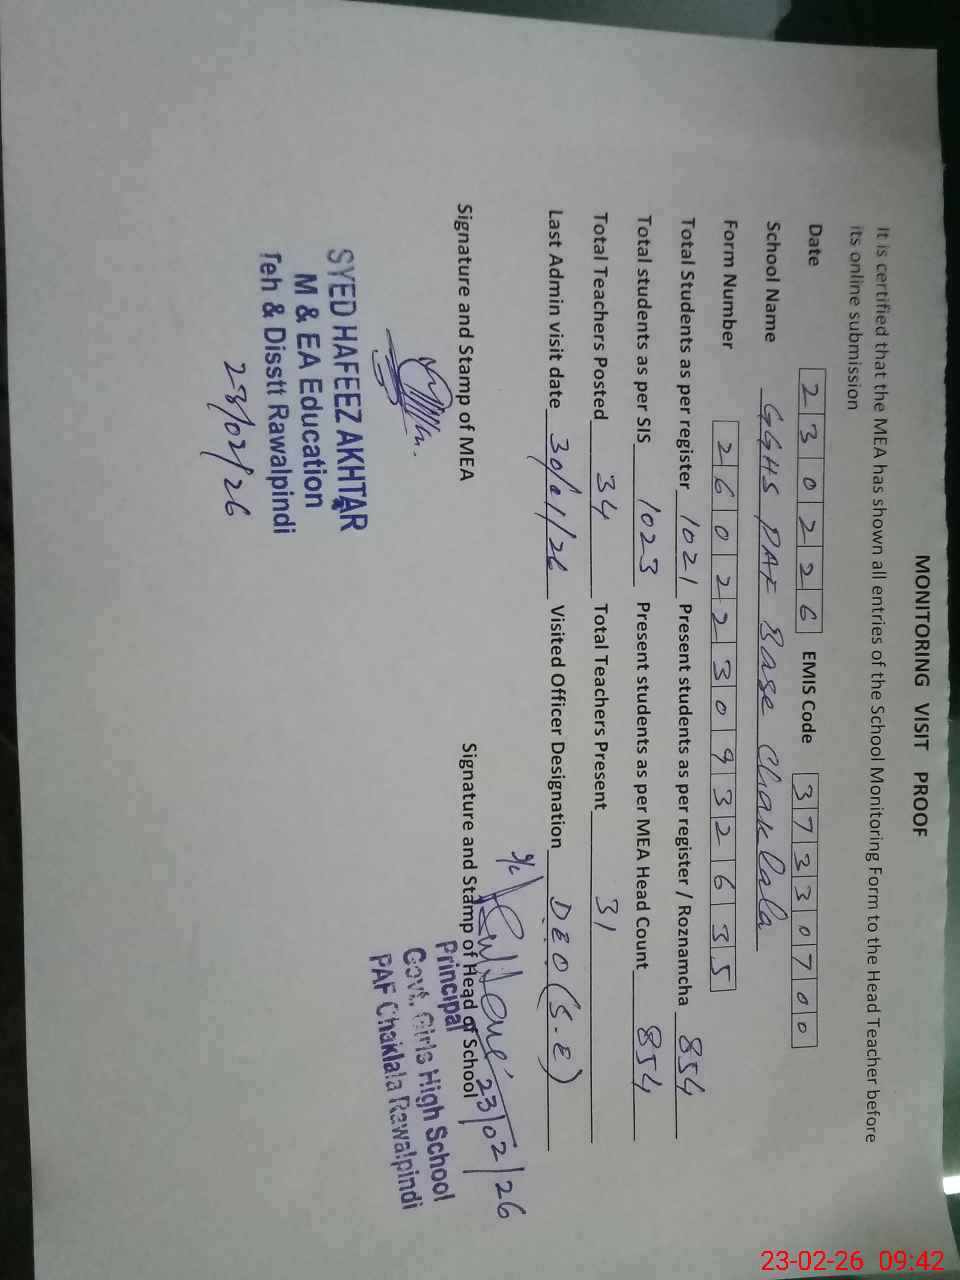 MONITORING VISIT PROOF
It is certified that the MEA has shown all entries of the School Monitoring Form to the Head Teacher before
its online submission
Date 230226 EMIS Code 37330700
School Name GGHS PAF Base Chaklala
Form Number 2602230932635
Total Students as per register 1021 Present students as per register / Roznamcha 854
Total students as per SIS 1023 Present students as per MEA Head Count 854
Total Teachers Posted 34 Total Teachers Present 31
Last Admin visit date 30/01/26 Visited Officer Designation DEO (S.E)
Signature and Stamp of MEA Signature and Stamp of Head of School
23/02/26
Principal
Govt. Girls High School
PAF Chaklala Rawalpindi
SYED HAFEEZ AKHTAR
M & EA Education
Teh & Disstt Rawalpindi
23/02/26
23-02-26 09:42